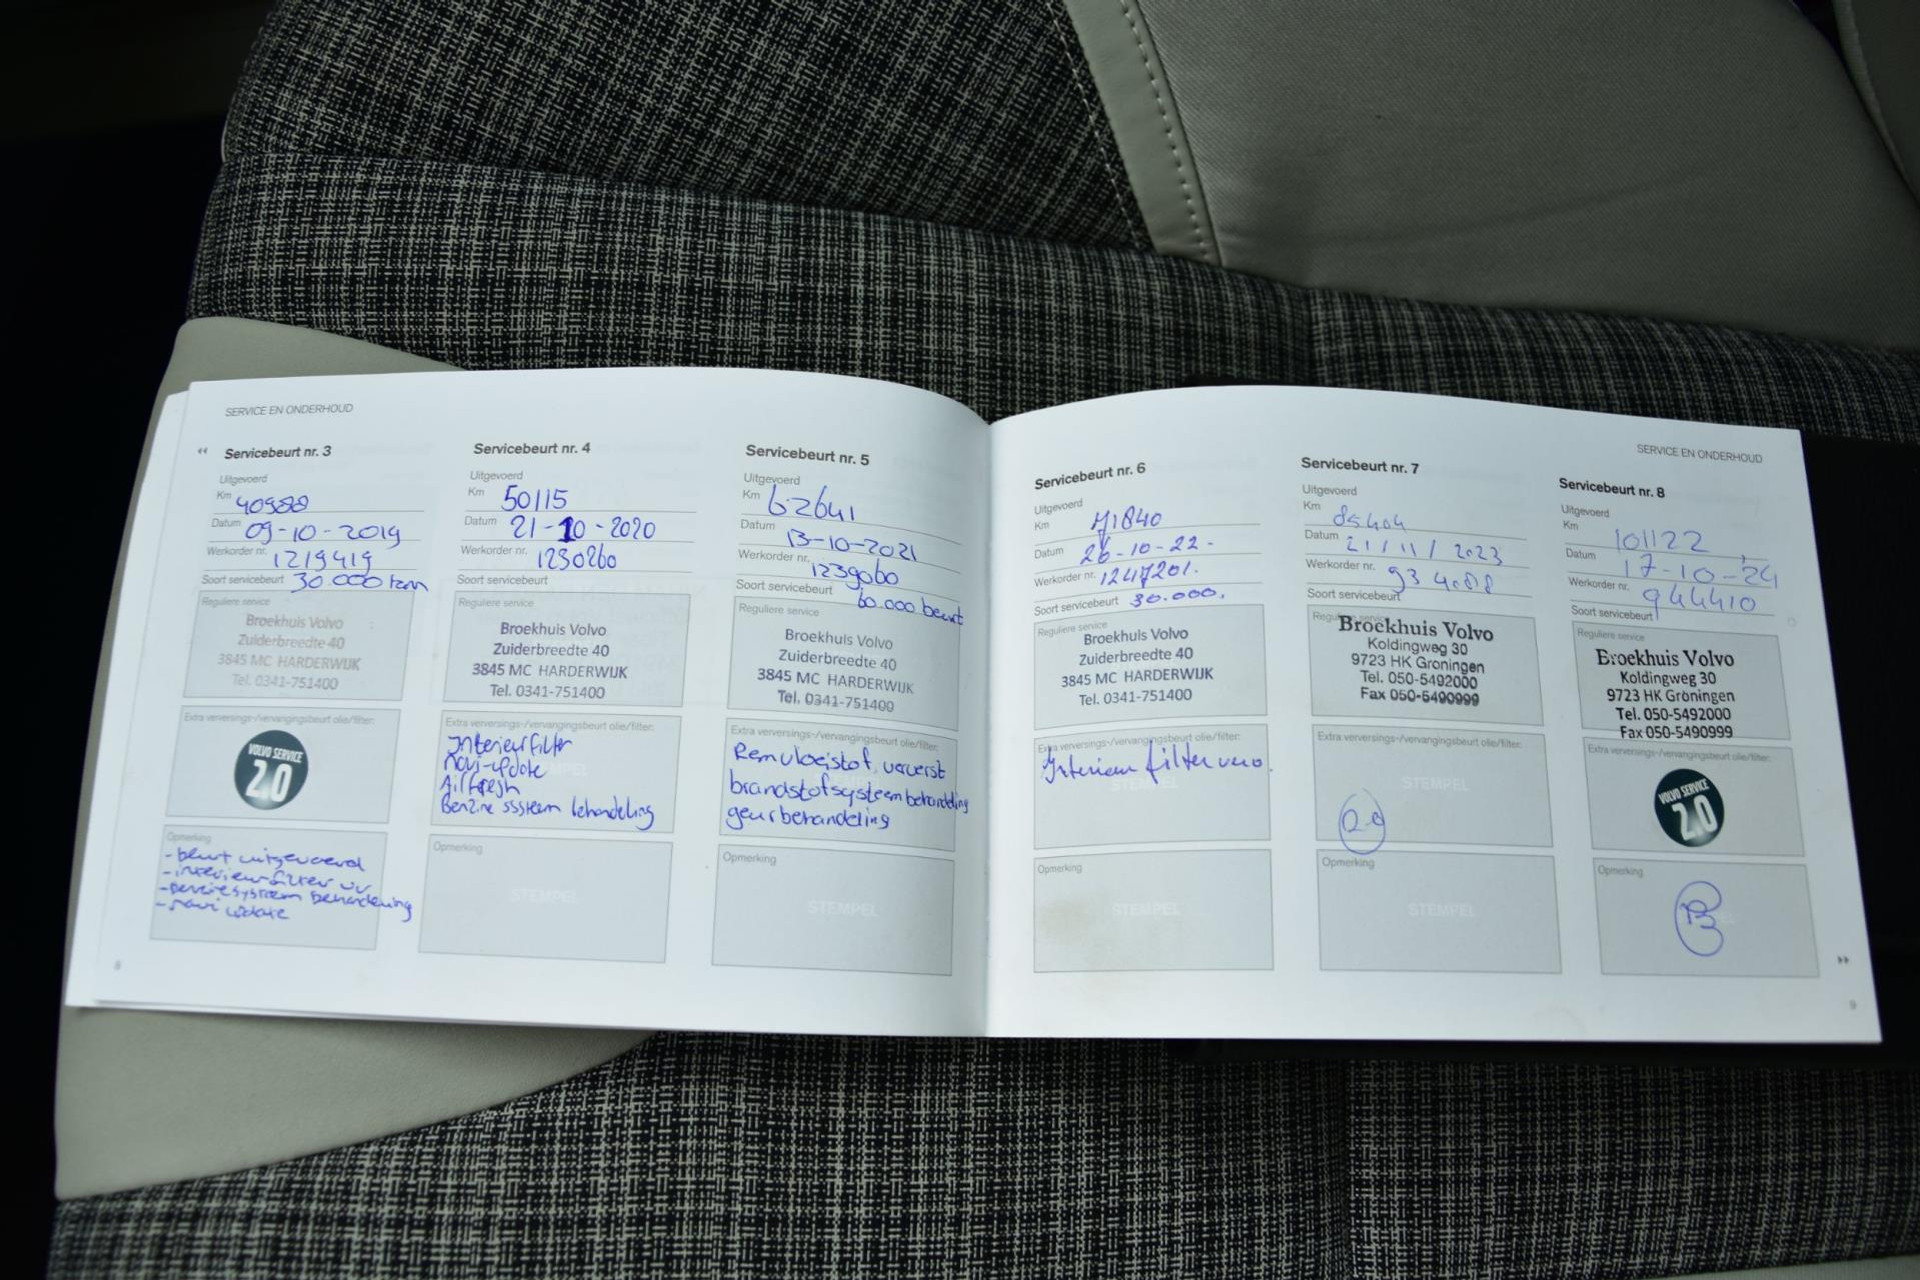 SERVICE EN ONDERHOUD
Servicebeurt nr. 3
Uitgevoerd
Km 40988
Datum 09-10-2019
Werkorder nr. 1219419
Soort servicebeurt 30.000 km
Reguliere service
Broekhuis Volvo
Zuiderbreedte 40
3845 MC HARDERWIJK
Tel. 0341-751400
Extra verversings-/vervangingsbeurt olie/filter:
VOLVO SERVICE
2.0
Opmerking
- beurt uitgevoerd
- interieurfilter vv
- benzinesysteem behandeling
- navi update
8
Servicebeurt nr. 4
Uitgevoerd
Km 50115
Datum 21-10-2020
Werkorder nr. 1230260
Soort servicebeurt
Reguliere service
Broekhuis Volvo
Zuiderbreedte 40
3845 MC HARDERWIJK
Tel. 0341-751400
Extra verversings-/vervangingsbeurt olie/filter:
Interieurfilter
navi-update
Airfresh
Benzine sssteem behandeling
Opmerking
STEMPEL
Servicebeurt nr. 5
Uitgevoerd
Km 62641
Datum 13-10-2021
Werkorder nr. 1239060
Soort servicebeurt 60.000 beurt
Reguliere service
Broekhuis Volvo
Zuiderbreedte 40
3845 MC HARDERWIJK
Tel. 0341-751400
Extra verversings-/vervangingsbeurt olie/filter:
Remvloeistof ververst
brandstofsysteembehandeling
geurbehandeling
Opmerking
STEMPEL
SERVICE EN ONDERHOUD
Servicebeurt nr. 6
Uitgevoerd
Km 71840
Datum 26-10-22.
Werkorder nr. 1247201.
Soort servicebeurt 30.000.
Reguliere service
Broekhuis Volvo
Zuiderbreedte 40
3845 MC HARDERWIJK
Tel. 0341-751400
Extra verversings-/vervangingsbeurt olie/filter:
Interieur filter
Opmerking
STEMPEL
Servicebeurt nr. 7
Uitgevoerd
Km 85404
Datum 21/11/2023
Werkorder nr. 934088
Soort servicebeurt
Broekhuis Volvo
Koldingweg 30
9723 HK Groningen
Tel. 050-5492000
Fax 050-5490999
Extra verversings-/vervangingsbeurt olie/filter:
STEMPEL
Opmerking
STEMPEL
Servicebeurt nr. 8
Uitgevoerd
Km 101122
Datum 17-10-24
Werkorder nr. 944410
Soort servicebeurt
Reguliere service
Broekhuis Volvo
Koldingweg 30
9723 HK Groningen
Tel. 050-5492000
Fax 050-5490999
Extra verversings-/vervangingsbeurt olie/filter:
VOLVO SERVICE
2.0
Opmerking
9